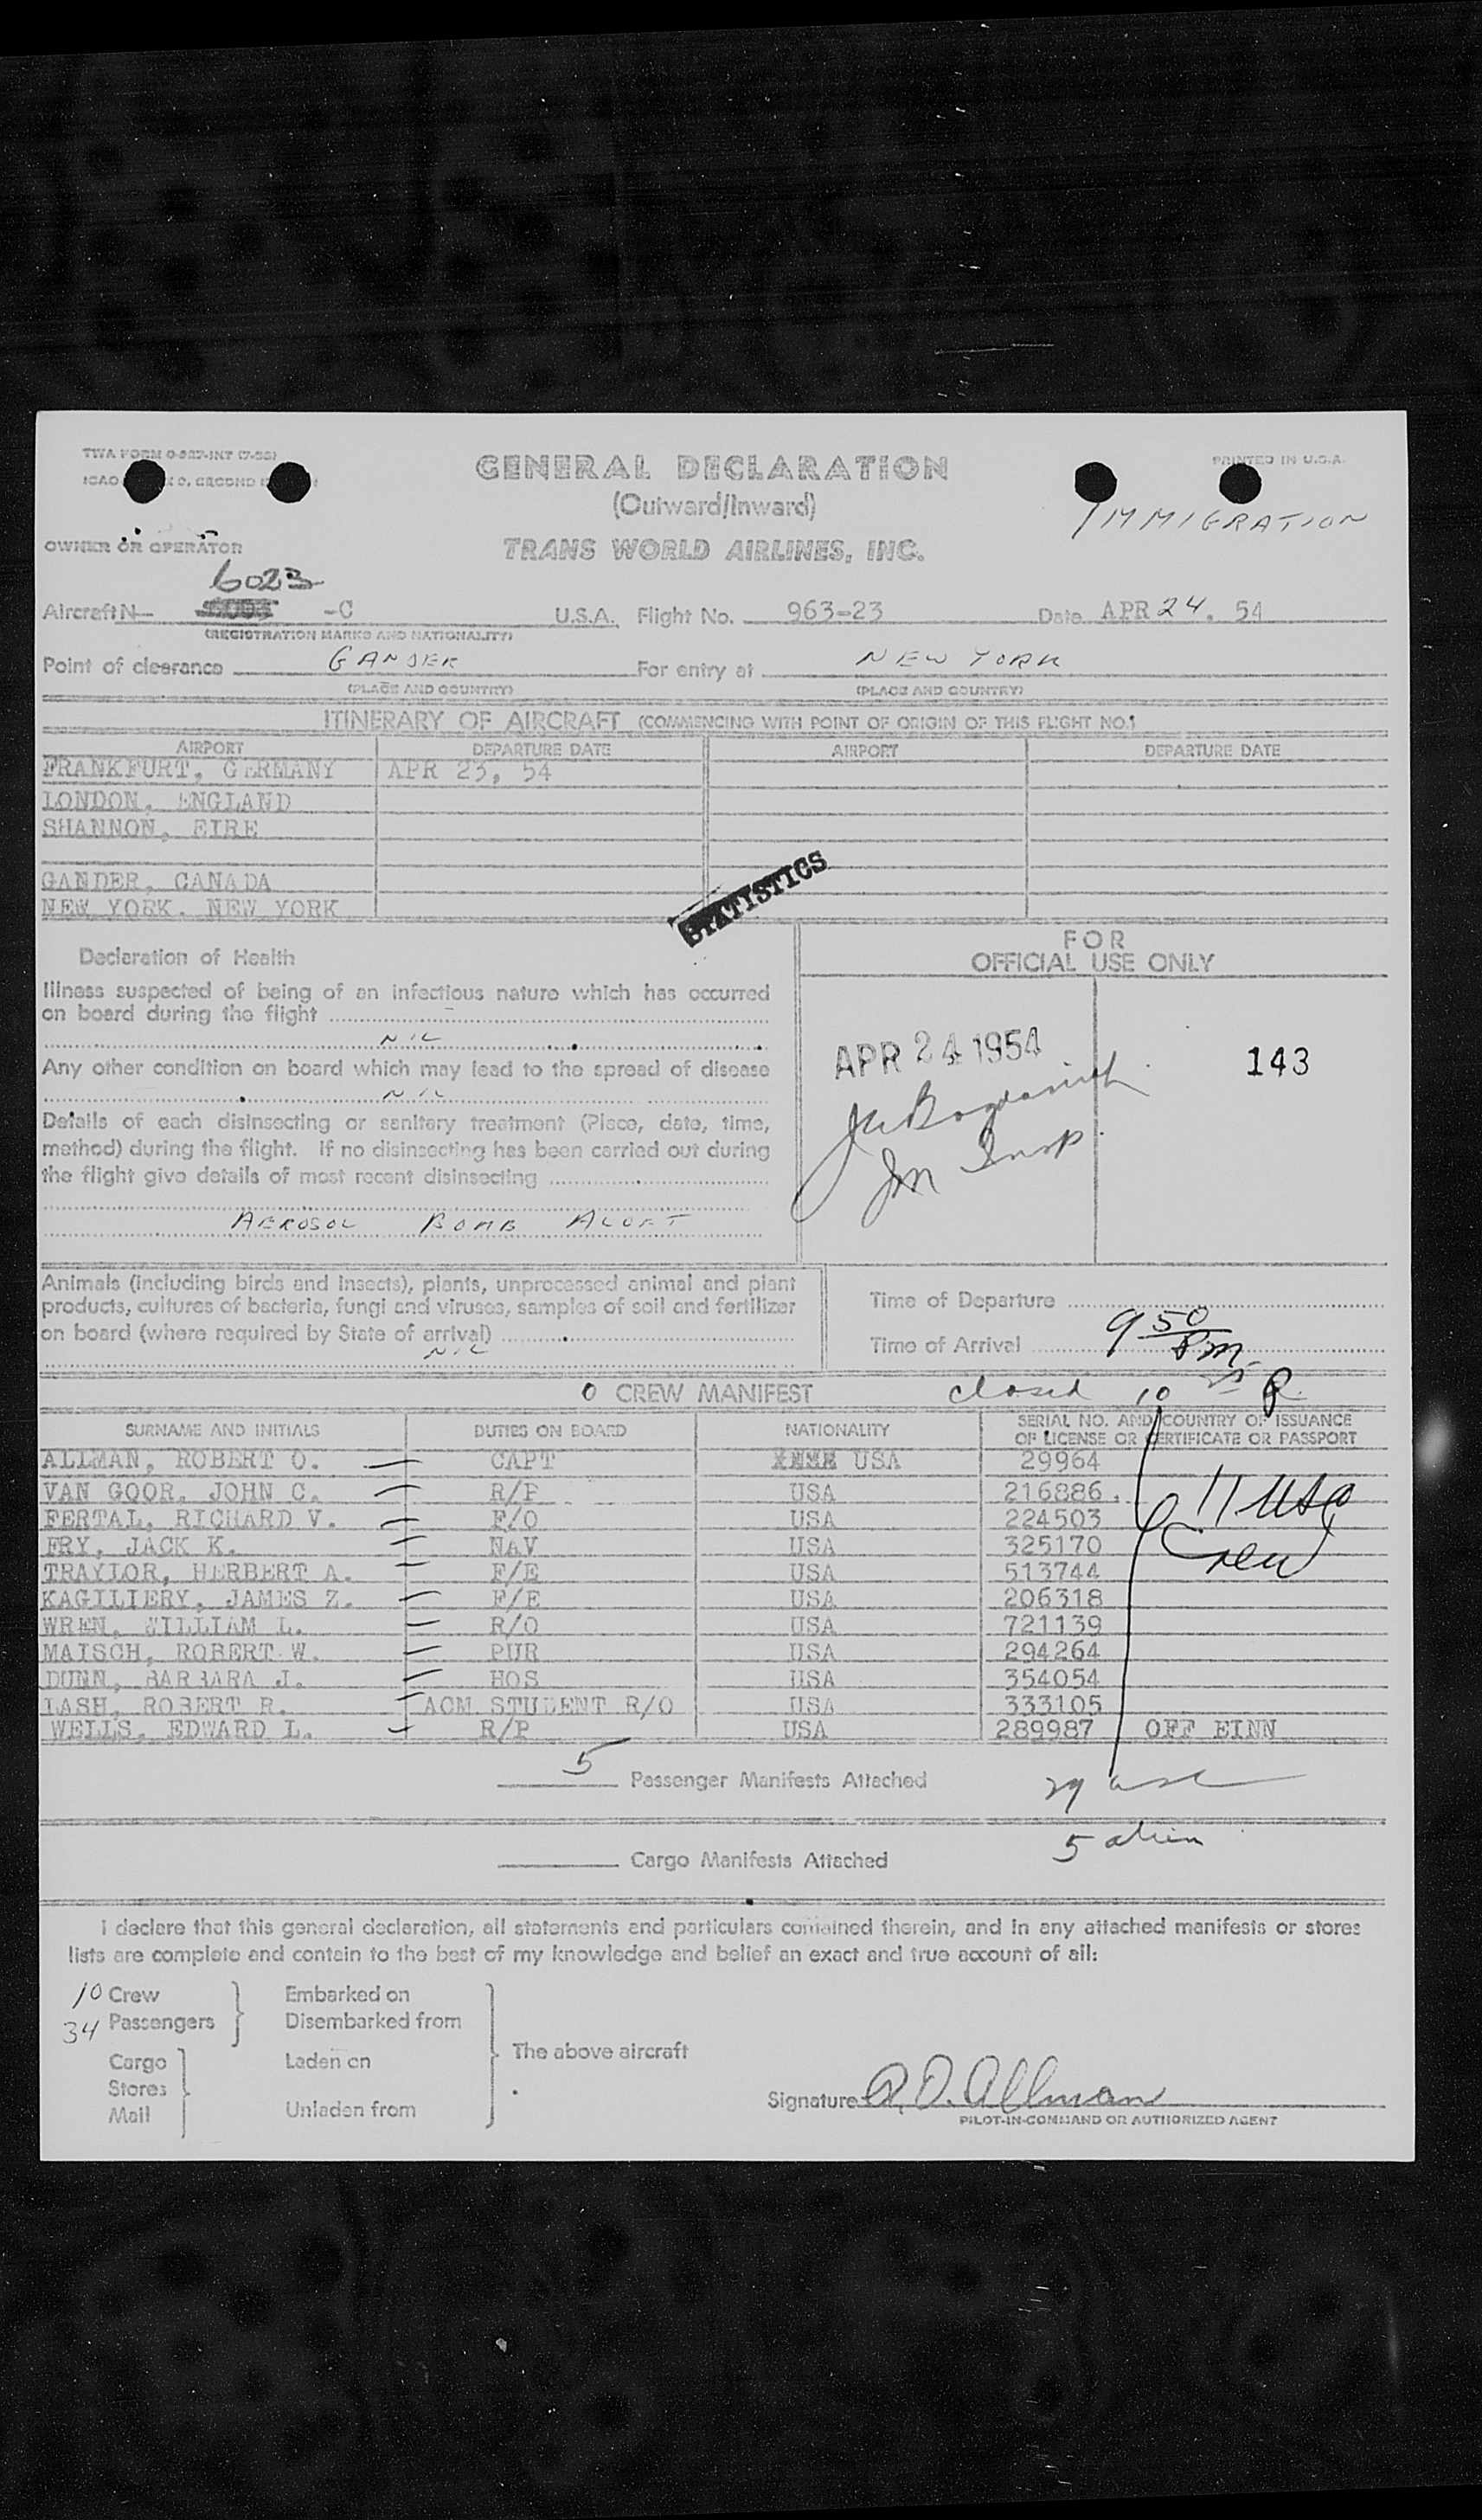 TWA FORM O-827-INT (7-53)
ICAO
PRINTED IN U.S.A.
GENERAL DECLARATION
(Outward/Inward)
IMMIGRATION
OWNER OR OPERATOR
TRANS WORLD AIRLINES, INC.
6023
Aircraft N- -C U.S.A. Flight No. 963-23 Date APR 24, 54
(REGISTRATION MARKS AND NATIONALITY)
Point of clearance GANDER For entry at NEW YORK
(PLACE AND COUNTRY) (PLACE AND COUNTRY)
ITINERARY OF AIRCRAFT (COMMENCING WITH POINT OF ORIGIN OF THIS FLIGHT NO.)
AIRPORT DEPARTURE DATE AIRPORT DEPARTURE DATE
FRANKFURT, GERMANY APR 23, 54
LONDON, ENGLAND
SHANNON, EIRE
GANDER, CANADA
NEW YORK, NEW YORK
STATISTICS
Declaration of Health
FOR
OFFICIAL USE ONLY
Illness suspected of being of an infectious nature which has occurred
on board during the flight
NIL
Any other condition on board which may lead to the spread of disease
NIL
Details of each disinsecting or sanitary treatment (Place, date, time,
method) during the flight. If no disinsecting has been carried out during
the flight give details of most recent disinsecting
AEROSOL BOMB ALOFT
APR 24 1954
143
Im Insp
Animals (including birds and insects), plants, unprocessed animal and plant
products, cultures of bacteria, fungi and viruses, samples of soil and fertilizer
on board (where required by State of arrival)
NIL
Time of Departure
Time of Arrival 9 50 Pm
0 CREW MANIFEST closed 10 P
SURNAME AND INITIALS DUTIES ON BOARD NATIONALITY SERIAL NO. AND COUNTRY OF ISSUANCE
OF LICENSE OR CERTIFICATE OR PASSPORT
ALLMAN, ROBERT O. CAPT USA 29964
VAN GOOR, JOHN C. R/P USA 216886
FERTAL, RICHARD V. F/O USA 224503
FRY, JACK K. NAV USA 325170
TRAYLOR, HERBERT A. F/E USA 513744
KAGILIERY, JAMES Z. F/E USA 206318
WREN, WILLIAM L. R/O USA 721139
MAISCH, ROBERT W. PUR USA 294264
DUNN, BARBARA J. HOS USA 354054
LASH, ROBERT R. ACM STUDENT R/O USA 333105
WELLS, EDWARD L. R/P USA 289987 OFF EINN
11 USC
Crew
5 Passenger Manifests Attached
29 usc
5 alien
Cargo Manifests Attached
I declare that this general declaration, all statements and particulars contained therein, and in any attached manifests or stores
lists are complete and contain to the best of my knowledge and belief an exact and true account of all:
10 Crew
34 Passengers
Embarked on
Disembarked from
Cargo
Stores
Mail
Laden on
Unladen from
The above aircraft
Signature R. O. Allman
PILOT-IN-COMMAND OR AUTHORIZED AGENT